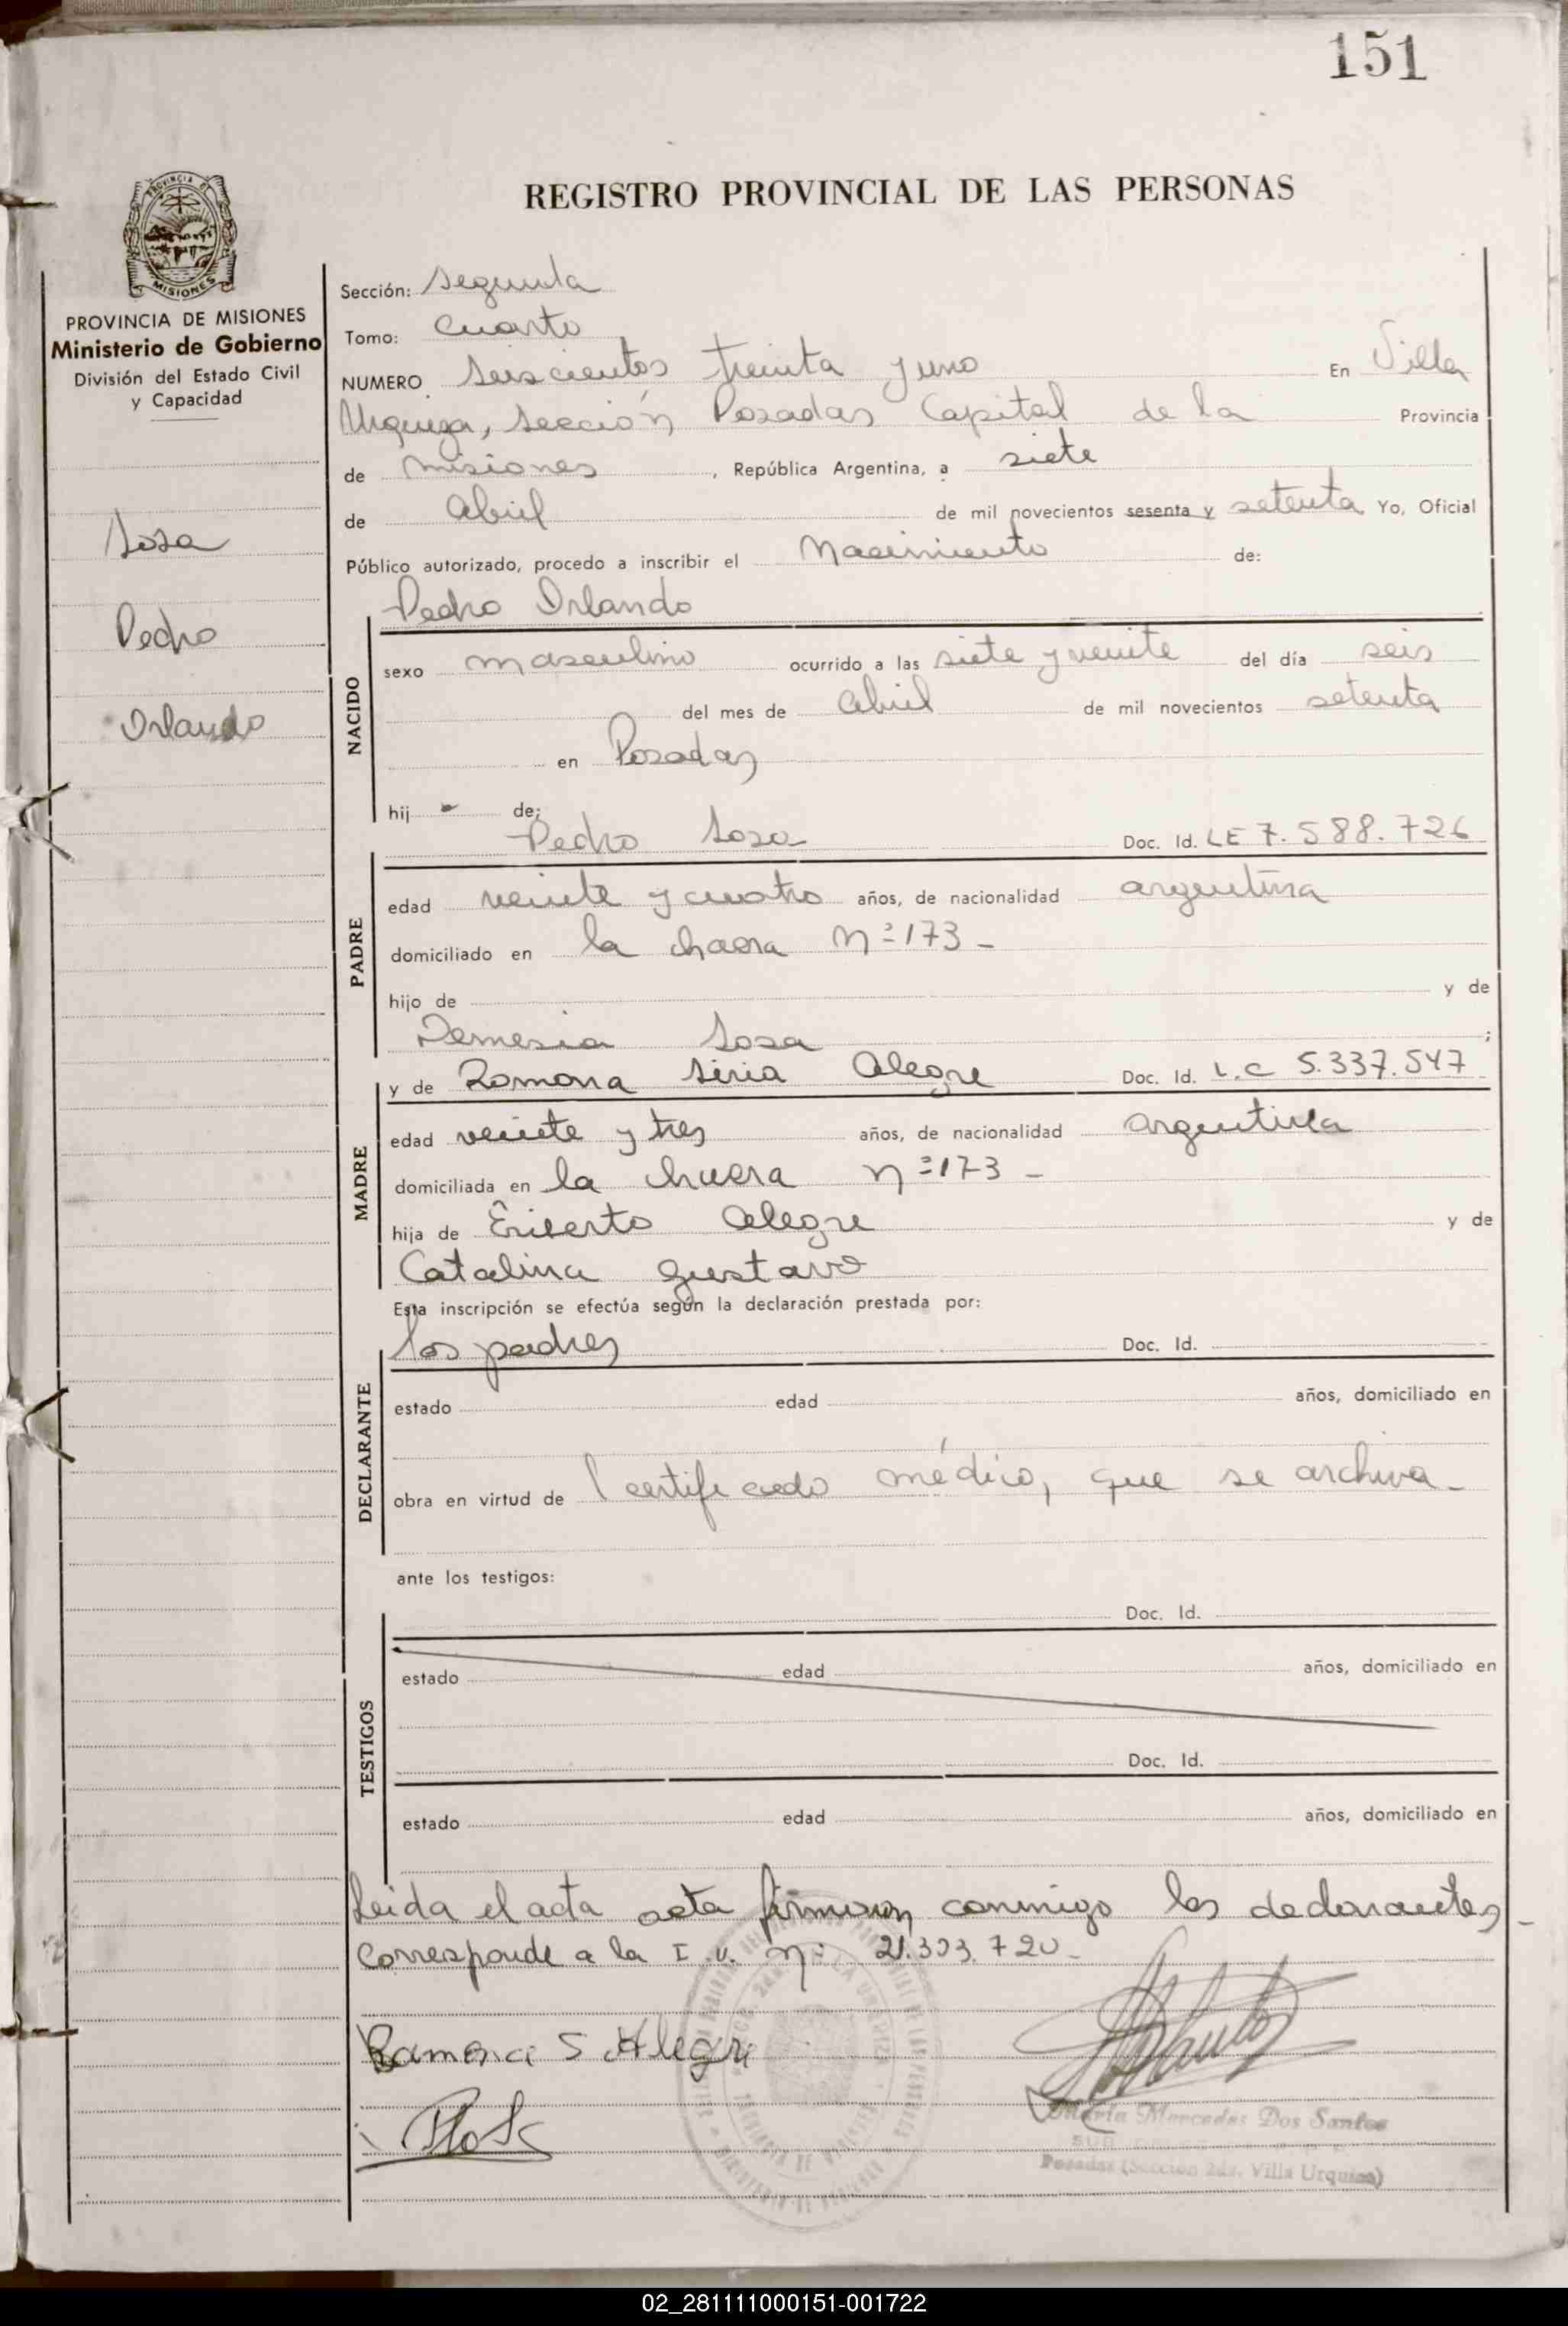 151
REGISTRO PROVINCIAL DE LAS PERSONAS
PROVINCIA DE
MISIONES
PROVINCIA DE MISIONES
Ministerio de Gobierno
División del Estado Civil
y Capacidad
Sosa
Pedro
Orlando
Sección: Segunda
Tomo: Cuarto
NUMERO Seiscientos treinta y uno En Villa
Urquiza, Sección Posadas Capital de la Provincia
de Misiones, República Argentina, a siete
de abril de mil novecientos sesenta y setenta Yo, Oficial
Público autorizado, procedo a inscribir el Nacimiento de:
Pedro Orlando
NACIDO
sexo masculino ocurrido a las siete y veinte del día seis
del mes de abril de mil novecientos setenta
en Posadas
hij de:
Pedro Sosa Doc. Id. LE 7.588.726
PADRE
edad veinte y cuatro años, de nacionalidad argentina
domiciliado en la chacra Nº 173 -
hijo de y de
Sosa ;
y de Ramona Siria Alegre Doc. Id. L.C 5.337.547
MADRE
edad veinte y tres años, de nacionalidad argentina
domiciliada en la chacra nº 173 -
hija de Eriberto Alegre y de
Catalina Gustavo
Esta inscripción se efectúa según la declaración prestada por:
los padres Doc. Id.
DECLARANTE
estado edad años, domiciliado en
obra en virtud de l certificado médico, que se archiva -
ante los testigos:
Doc. Id.
TESTIGOS
estado edad años, domiciliado en
Doc. Id.
estado edad años, domiciliado en
Leida el acta firman conmigo los declarantes -
Corresponde a la I. U. nº 21.303.720 -
Ramona S Alegre
María Mercedes Dos Santos
Posadas (Sección 2da. Villa Urquiza)
02_281111000151-001722